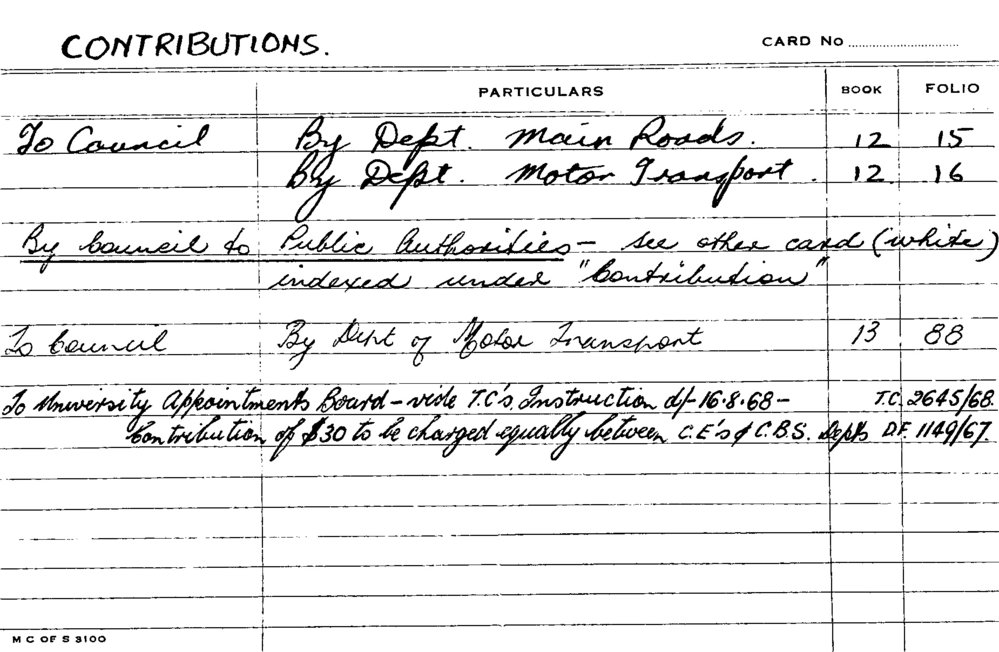 CONTRIBUTIONS. CARD No
PARTICULARS BOOK FOLIO
To Council By Dept. Main Roads. 12 15
By Dept. Motor Transport. 12. 16
By Council to Public Authorities - see other card (white)
indexed under "Contribution"
To Council By Dept of Motor Transport 13 88
To University Appointments Board - vide T.C's Instruction d/- 16.8.68 - T.C. 2645/68.
Contribution of $30 to be charged equally between C.E's & C.B.S. Depts D.F. 1149/67.
M C OF S 3100